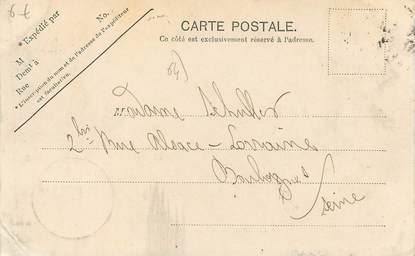 6 €
CARTE POSTALE.
Ce côté est exclusivement réservé à l'adresse.
* Expédié par
No.
M
Demt à
Rue
* L'inscription du nom et de l'adresse de l'expéditeur
est facultative.
Madame Schuller
2 bis Rue Alsace - Lorraine
Boulogne s/
Seine